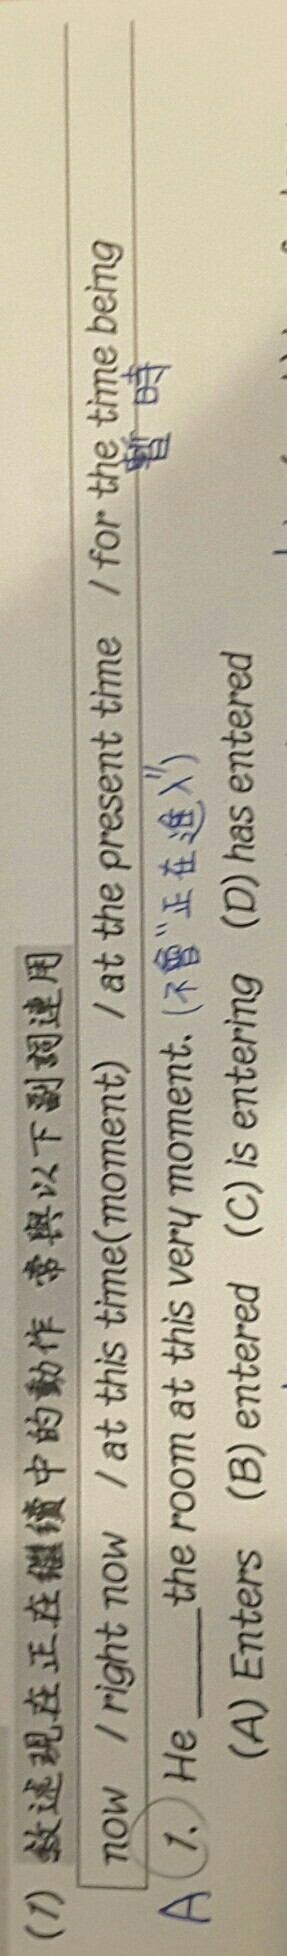 (1) 敘述現在正在繼續中的動作 常與以下副詞連用
now / right now / at this time(moment) / at the present time / for the time being
暫時
A 1. He ____ the room at this very moment. (不會"正在進入")
(A) Enters (B) entered (C) is entering (D) has entered